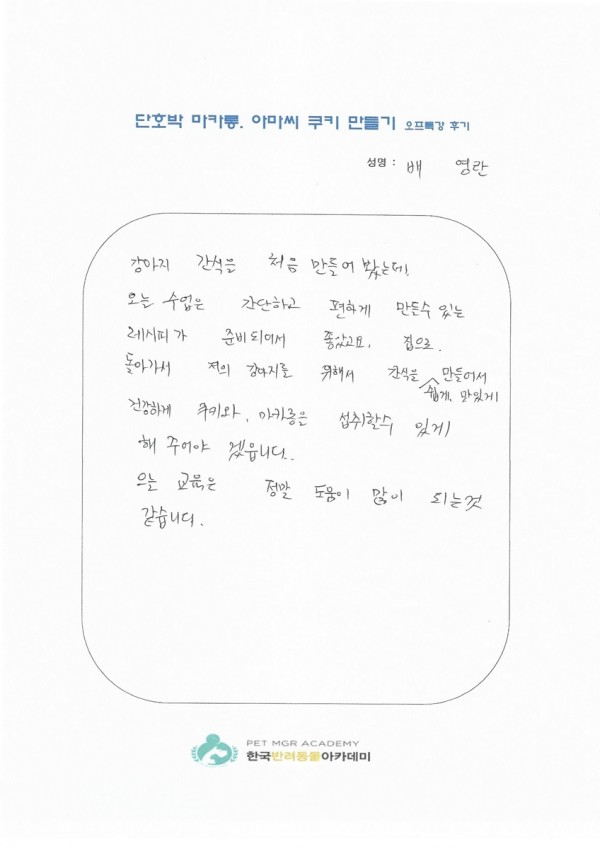 단호박 마카롱. 아마씨 쿠키 만들기 오프특강 후기
성명 : 배 영란
강아지 간식을 처음 만들어 봤는데,
오늘 수업은 간단하고 편하게 만든수 있는
레시피가 준비되어서 좋았고요, 집으로.
돌아가서 저의 강아지를 위해서 간식을 만들어서
쉽게, 맛있게
건강하게 쿠키와, 마카롱을 섭취할수 있게
해 주어야 겠읍니다..
오늘 교육은 정말 도움이 많이 되는것
같습니다.
PET MGR ACADEMY
한국반려동물아카데미